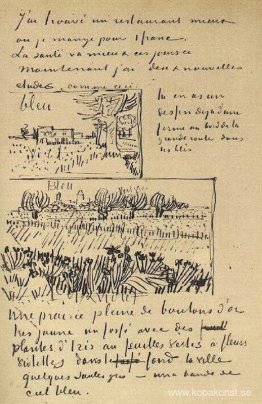 J'ai trouvé un restaurant mieux
ou je mange pour 1 franc.
La santé va mieux ces jours ci
Maintenant j'ai deux nouvelles
etudes comme ceci
bleu
tu en as un
dessin deja d'une
ferme au bord de la
grande route dans
les blés
Bleu
Une prairie pleine de boutons d'or
tres jaune un fossé avec des
plantes d'Iris aux feuilles vertes à fleurs
violettes dans le fond la ville
quelques saules gris – une bande de
ciel bleu.
www.kopakonst.se